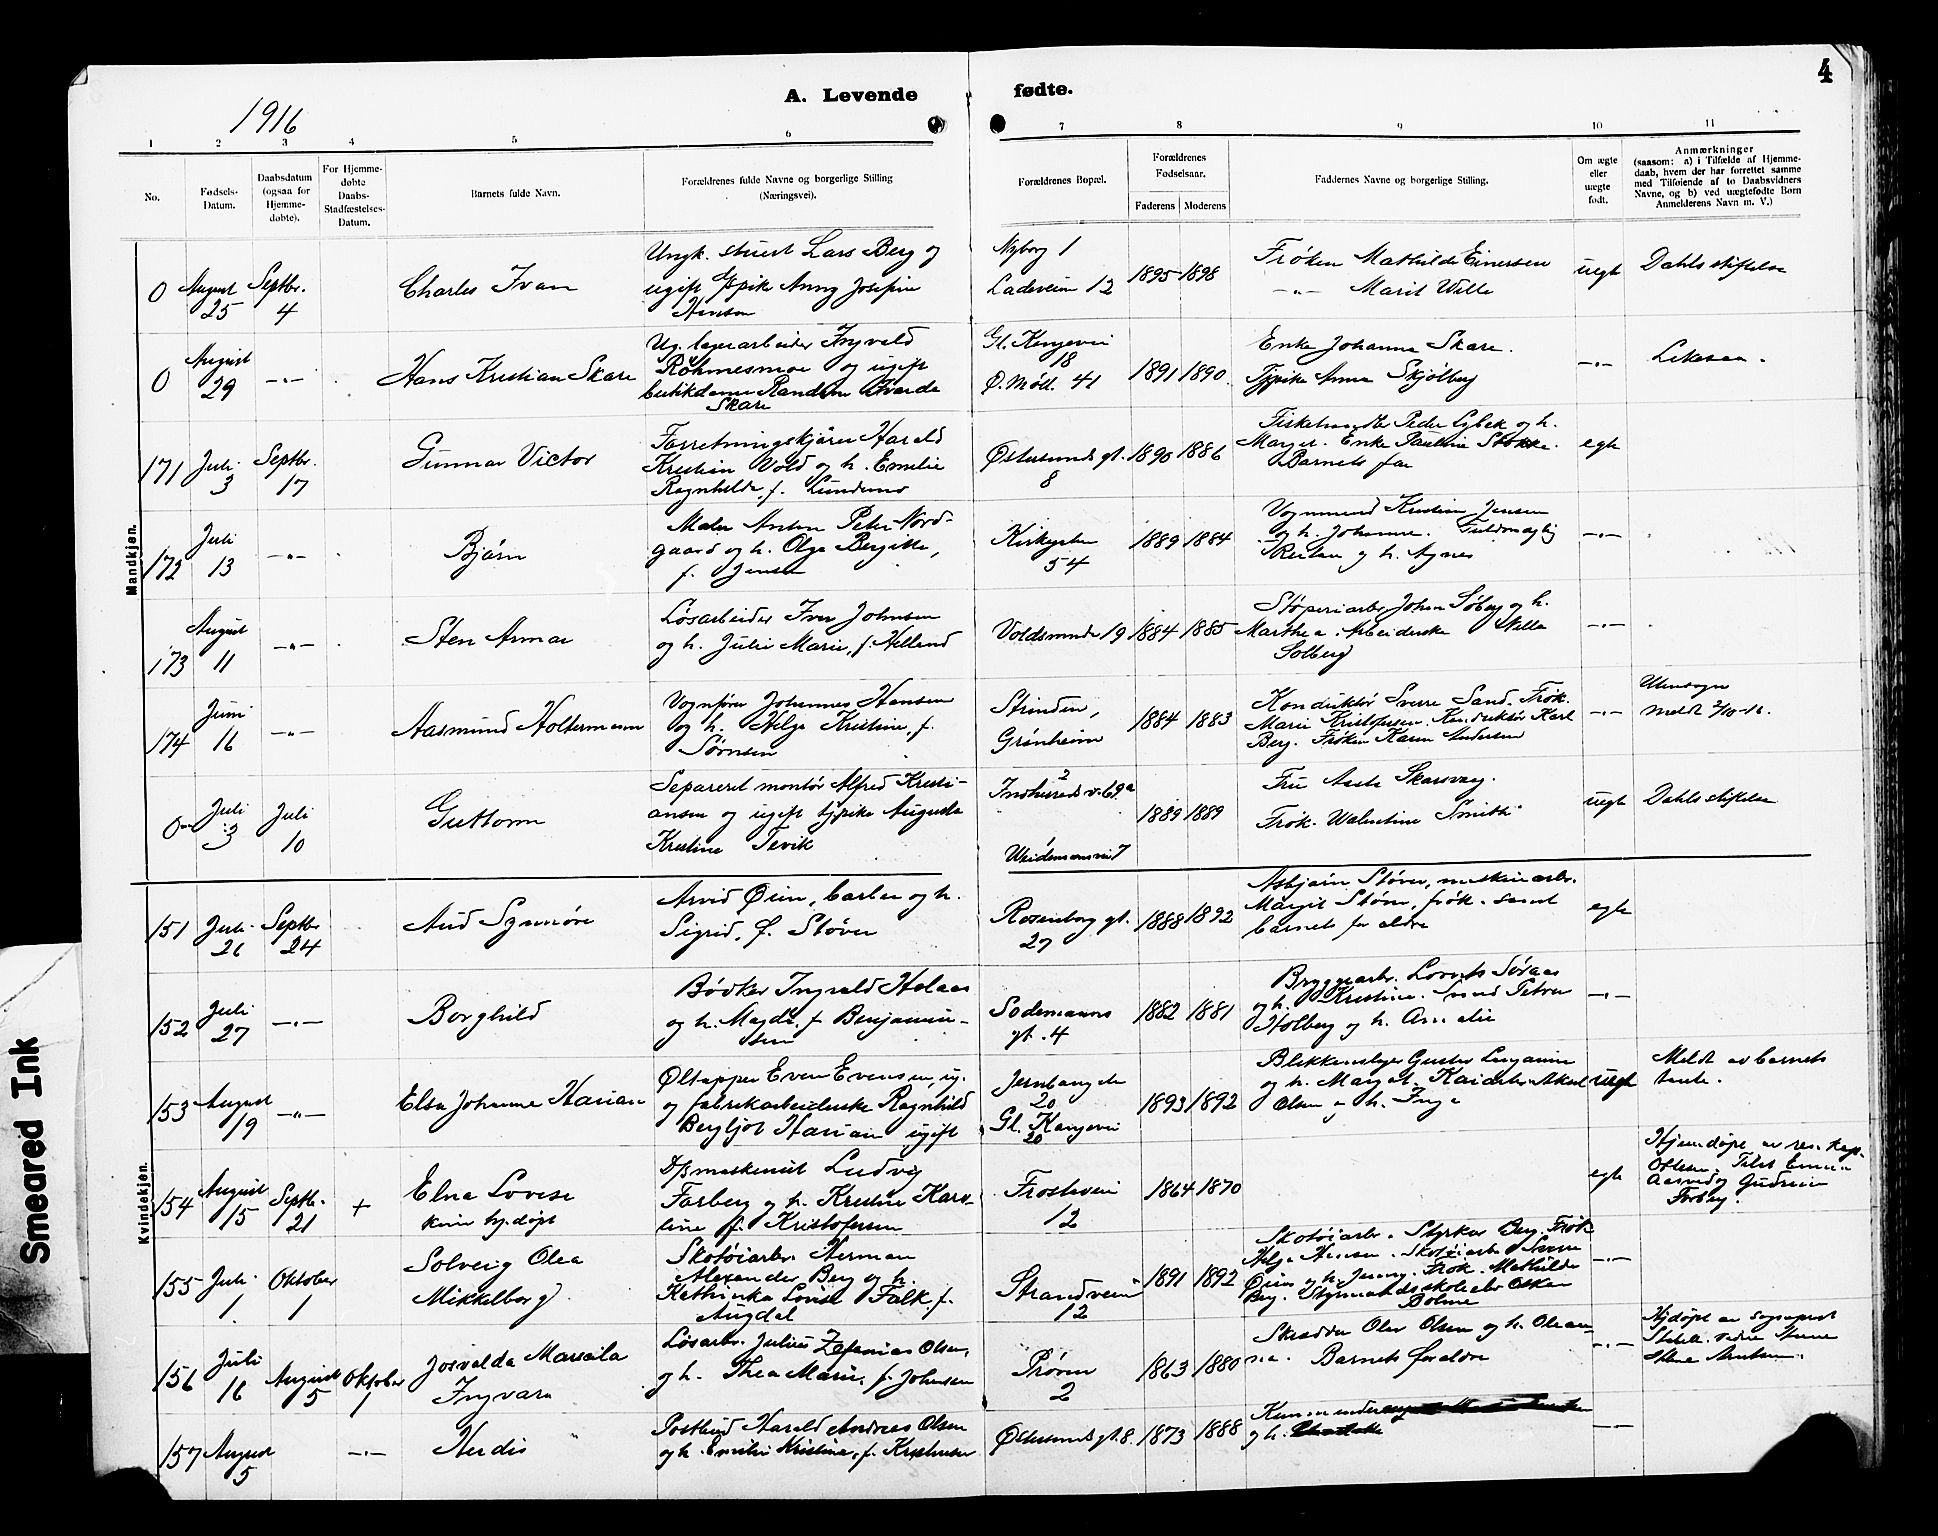 4
A. Levende fødte.
1916
1 2 3 4 5 6 7 8 9 10 11
No.
Fødsels-
Datum.
Daabsdatum
(ogsaa for
Hjemme-
døbte).
For Hjemme-
døbte
Daabs-
Stadfæstelses-
Datum.
Barnets fulde Navn.
Forældrenes fulde Navne og borgerlige Stilling
(Næringsvei).
Forældrenes Bopæl.
Forældrenes
Fødselsaar.
Faderens Moderens
Faddernes Navne og borgerlige Stilling.
Om ægte
eller
uægte
født.
Anmærkninger
(saasom: a) i Tilfælde af Hjemme-
daab, hvem der har forrettet samme
med Tilføiende af to Daabsvidners
Navne, og b) ved uægtefødte Børn
Anmelderens Navn m. V.)
Mandkjøn.
0
August
25
Septbr.
4
Charles Ivan
Ungk. stuert Lars Berg og
ugift tjpike Anny Josefine
Nyborg 1
Ladeveien 12
1895 1898
Frøken Mathilde Einersen
-"- Marit Wille
uegt
Dahls stiftelse
0
August
29
-"-
Hans Kristian Skare
Ug. lagerarbeider Ingvald
Røhmesmoe og ugift
butikdame Randine
Skare
Gl. Kongevei
18
Ø. Møll. 41
1891 1890
Enke Johanna Skare.
Tjpike Anna Skjølberg
-"-
171
Juli
3
Septbr.
17
Gunnar Victor
Forretningskjører Harald
Kristian Vold og h. Emelie
Ragnhilda, f. Lundemo
Østersunds gt.
8
1890 1886
Fiskehandler Peder Lybek og h.
Marget. Enke Pauline Stokke.
Barnets far
egte
172
Juli
13
-"-
Bjørn
Maler Anton Peter Nord-
gaard og h. Olga Bergitte,
f. Jensen
Kirkegaten
54
1889 1884
Vognmand Kristian Jensen
og h. Johanna. Fuldmægtig
og h. Agnes
-"-
173
August
11
-"-
Sten Armar
Løsarbeider Iver Johnsen
og h. Julie Marie, f. Helland
Voldsminde 19
1884 1885
Støperiarb. Johan Søberg og h.
Marthea. Arbeiderske
Solberg
-"-
174
Juni
16
-"-
Aasmund Holtermann
Vognfører Johannes Hansen
og h. Helga Kristine, f.
Sørnsen
Strinden,
Grønheim
1884 1883
Konduktør Sverre Sand. Frøk.
Marie Kristofersen. Konduktør Karl
Berg. Frøken Karen Andersen
-"-
Utensogn
meldt 2/10-16.
0
Juli
3
Juli
10
Guttorm
Separert montør Alfred Kristi-
ansen og ugift tjpike Augusta
Kristine Tevik
Indherreds v. 69a
Weidemansvei 7
1889 1889
Fru Skarsvaag.
Frøk. Walentine Smith
uegt
Dahls stiftelse
Kvindekjøn.
151
Juli
26
Septbr
24
Aud Synnøve
Arvid Øien, barber og h.
Sigrid, f. Støver
Rosenborg gt.
27
1888 1892
Asbjørn Støver, maskinarb.
Margit Støver, frøk. samt
barnets foreldre
egte
152
Juli
27
-"-
Borghild
Bødker Ingvald Holaas
og h. Magda, f. Benjamin-
sen
Sodemanns
gt. 4
1882 1881
Bryggearb. Lorents Søraas
og h. Kristine. Petter
Holberg og h. Amalie
-"-
153
August
19
-"-
Elsa Johanne Harian
Øltapper Even Evensen, ug.
og fabrikarbeiderske Ragnhild
Bergljot Harian ugift
Jernbanegaten
20
Gl. Kongevei
20
1893 1892
Blikkenslager Gustav Benjamin
og h. Marget. Kaiarb. Aksel
Olsen og h. Inga
uegt
Meldt av barnets
tante.
154
August
15
Septb.
21
+
Elna Lovise
kun hj.døpt
D/s maskinist Ludvig
Forberg og h. Kristine Karo-
line f. Kristofersen
Frostavei
12
1864 1870
egte
Hjemdøpt av res. kap.
Ottesen. Gudrun
Forberg.
155
Juli
1
Oktober
1
Solveig Olea
Mikkelborg
Skotøiarb. Herman
Alexander Berg og h.
Kathinka Lovise Falk, f.
Augdal
Strandveien
12
1891 1892
Skotøiarb. Styrker Berg. Frøk.
Helga Hansen. Skotøiarb. Sverre
Øien og h. Jenny. Frøk. Mathilde
Berg. Styrmandsskoleelev Oskar
Bolme
-"-
156
Juli
16
August
5
Oktober
1
Josvalda Marsila
Ingvara
Løsarb. Julius Zefanias Olsen
og h. Thea Marie, f. Johnsen
Prøven
2
1863 1880
Skrædder Olav Olsen og h. Olean-
na. Barnets foreldre
-"-
Hjdøpt av sogneprest
157
August
5
-"-
Herdis
Postbud Harald Andreas Olsen
og h. Emilie Kristine, f. Kristensen
Østersunds gt. 8.
1873 1888
og h.
-"-
Smeared Ink